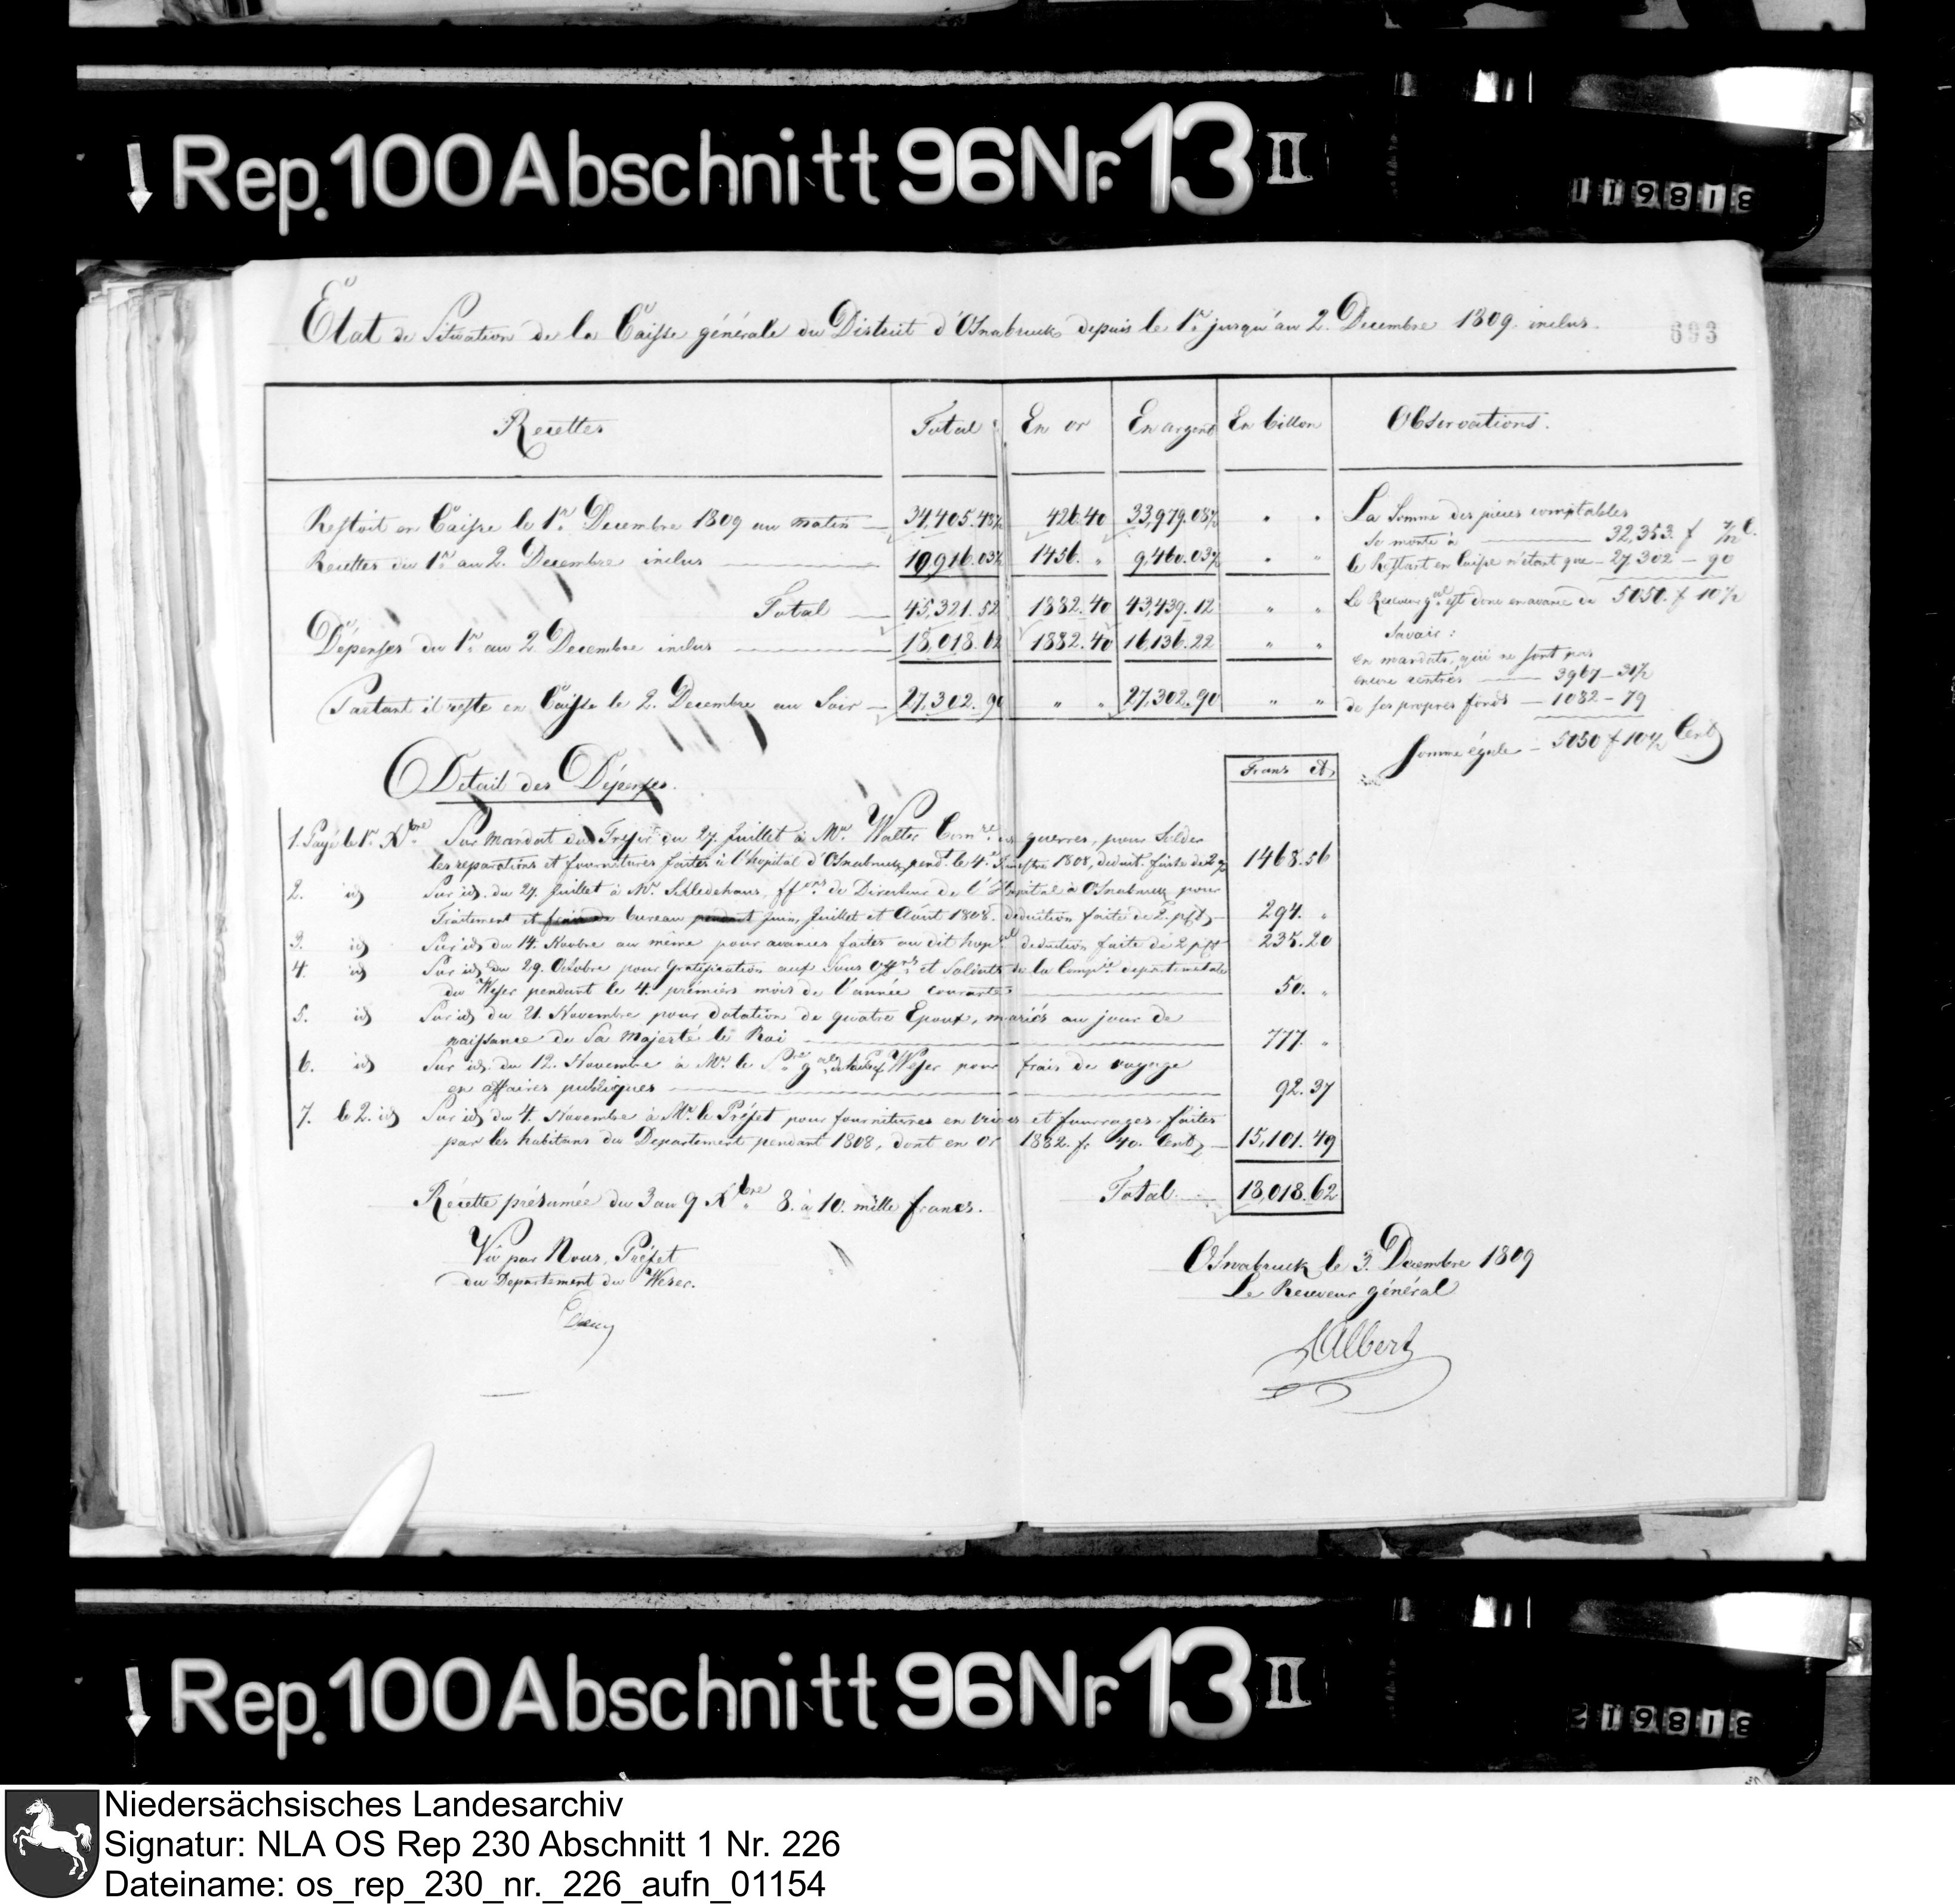 Rep. 100 Abschnitt 96 Nr. 13 II
119818
Etat de Situation de la Caisse générale du District d'Osnabruck depuis le 1.er jusqu'au 2. Decembre 1809. inclus.
693
Recettes Total En or En argent En billon Observations.
Restoit en Caisse le 1.er Decembre 1809 au matin 34,405.48½ 426.40 33,979.08½ " "
Recettes du 1.er au 2. Decembre inclus 10,916.03½ 1456. " 9,460.03½ " "
Total 45,321.52 1882.40 43,439.12 " "
Dépenses du 1.er au 2. Decembre inclus 18,018.62 1882.40 16,136.22 " "
Partant il reste en Caisse le 2. Decembre au Soir 27,302.90 " " 27,302.90 " "
La Somme des pieces comptables
se monte à 32,353. f
le Restant en Caisse n'étant que 27.302 – 90
Le Receveur g.al est donc en avance de 5050. f 10½
Savoir:
en mandats, qui ne sont pas
encore rentrés 3967 – 31½
de ses propres fonds – 1082 – 79
Somme égale – 5050 f 10½ Cent
Detail des Dépenses.
Francs Ct
1. Payé le 1.er Xbre Sur Mandat du Trésor du 27. Juillet à Mr. Walter Com.re des guerres, pour Solder
les reparations et fournitures faites à l'hopital d'Osnabruck pend.t le 4.e Trimestre 1808, deduct. faite de 2 p 1468.56
2. id Sur id. du 27. Juillet à Mr. Schledehaus, ff.ons de Directeur de l'Hopital à Osnabruck pour
Traitement et frais de bureau pendant Juin, Juillet et Août 1808. deduction faite de 2. pct 294. "
3. id Sur id du 14. Novbre au même pour avances faites au dit hop.al deduction faite de 2 pct 235.20
4. id Sur id du 29. Octobre pour Gratification aux Sous Off.rs et Soldats de la Comp.ie departementale
du Weser pendant le 4. prémiers mois de l'année courante 50. "
5. id Sur id du 21. Novembre pour dotation de quatre Epoux, mariés au jour de
naissance de Sa Majesté le Roi 777. "
6. id Sur id. du 12. Novembre à Mr. le Weser pour frais de voyage
en affaires publiques 92.37
7. le 2. id Sur id du 4. Novembre à Mr. le Préfet pour fournitures en vivres et fourrages faites
par les habitans du Departement pendant 1808, dont en Or 1882. fr 40. Cent 15,101.49
Total 18,018.62
Récette présumée du 3 au 9 Xbre 8. à 10. mille francs.
Vu par Nous, Préfet
du Departement du Weser.
Osnabruck le 3. Decembre 1809
Le Receveur général
Albert
Rep. 100 Abschnitt 96 Nr. 13 II
219818
Niedersächsisches Landesarchiv
Signatur: NLA OS Rep 230 Abschnitt 1 Nr. 226
Dateiname: os_rep_230_nr._226_aufn_01154